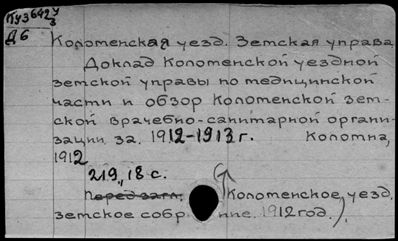 ПУ3 642 у/3
Д6
Коломенская уезд. Земская управа
Доклад Коломенской уездной
земской управы по медицинской
части и обзор Коломенской зем-
ской врачебно-санитарной органи-
зации за. 1912-1913 г. Коломна,
1912
219, 18 с.
Перед загл. Коломенское уезд.
земское собр ние. 1912 год.)